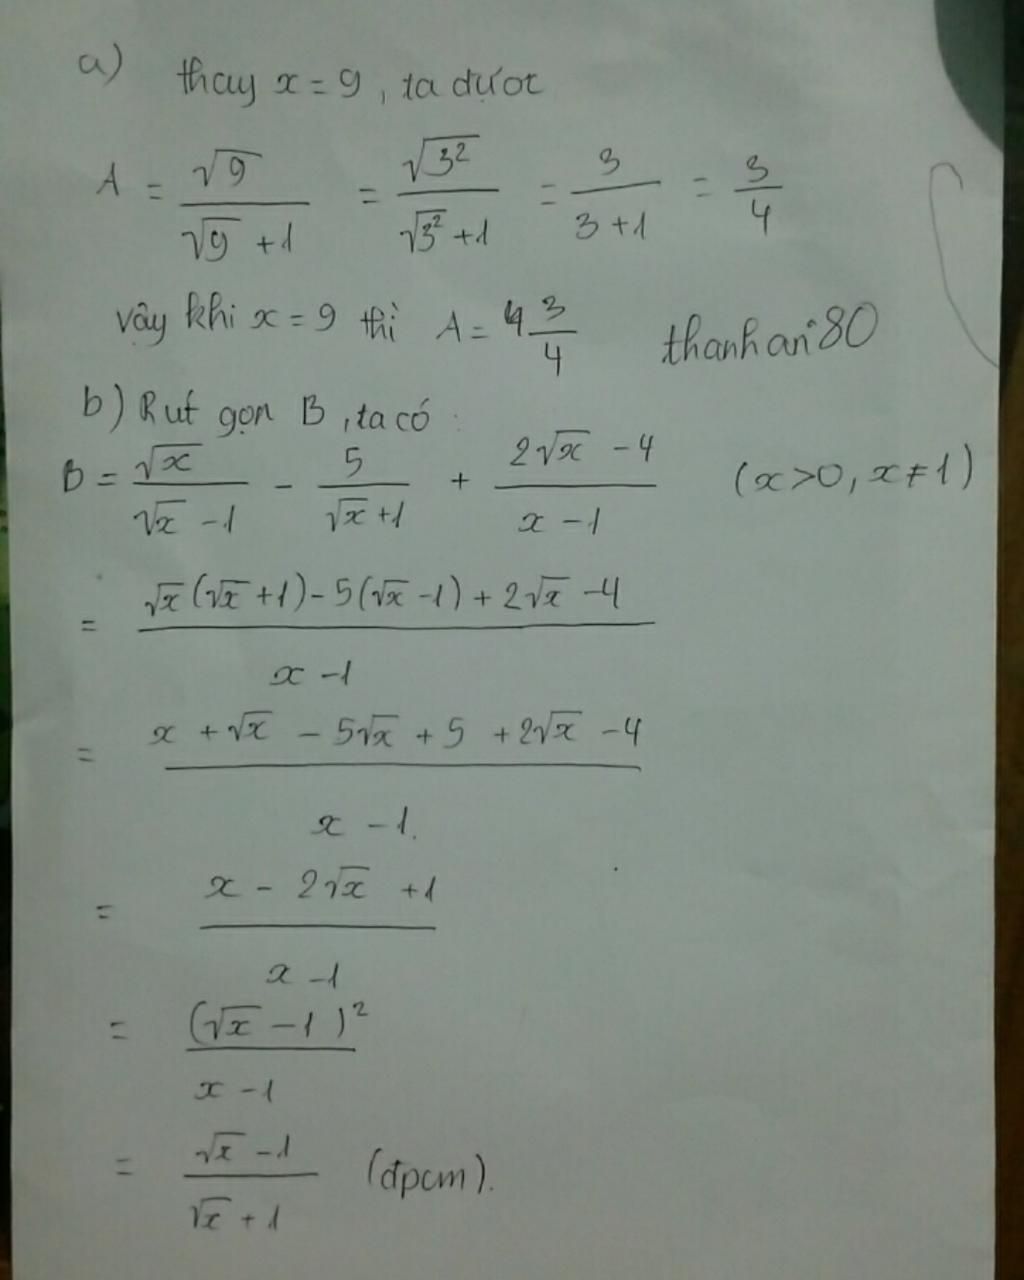 a) thay x = 9, ta được
A = √9 / (√9 + 1) = √3² / (√3² + 1) = 3 / (3 + 1) = 3/4
vậy khi x = 9 thì A = 3/4 thanhan80
b) Rút gọn B, ta có :
B = √x / (√x - 1) - 5 / (√x + 1) + (2√x - 4) / (x - 1) (x > 0, x ≠ 1)
= (√x(√x + 1) - 5(√x - 1) + 2√x - 4) / (x - 1)
= (x + √x - 5√x + 5 + 2√x - 4) / (x - 1)
= (x - 2√x + 1) / (x - 1)
= (√x - 1)² / (x - 1)
= (√x - 1) / (√x + 1) (đpcm).